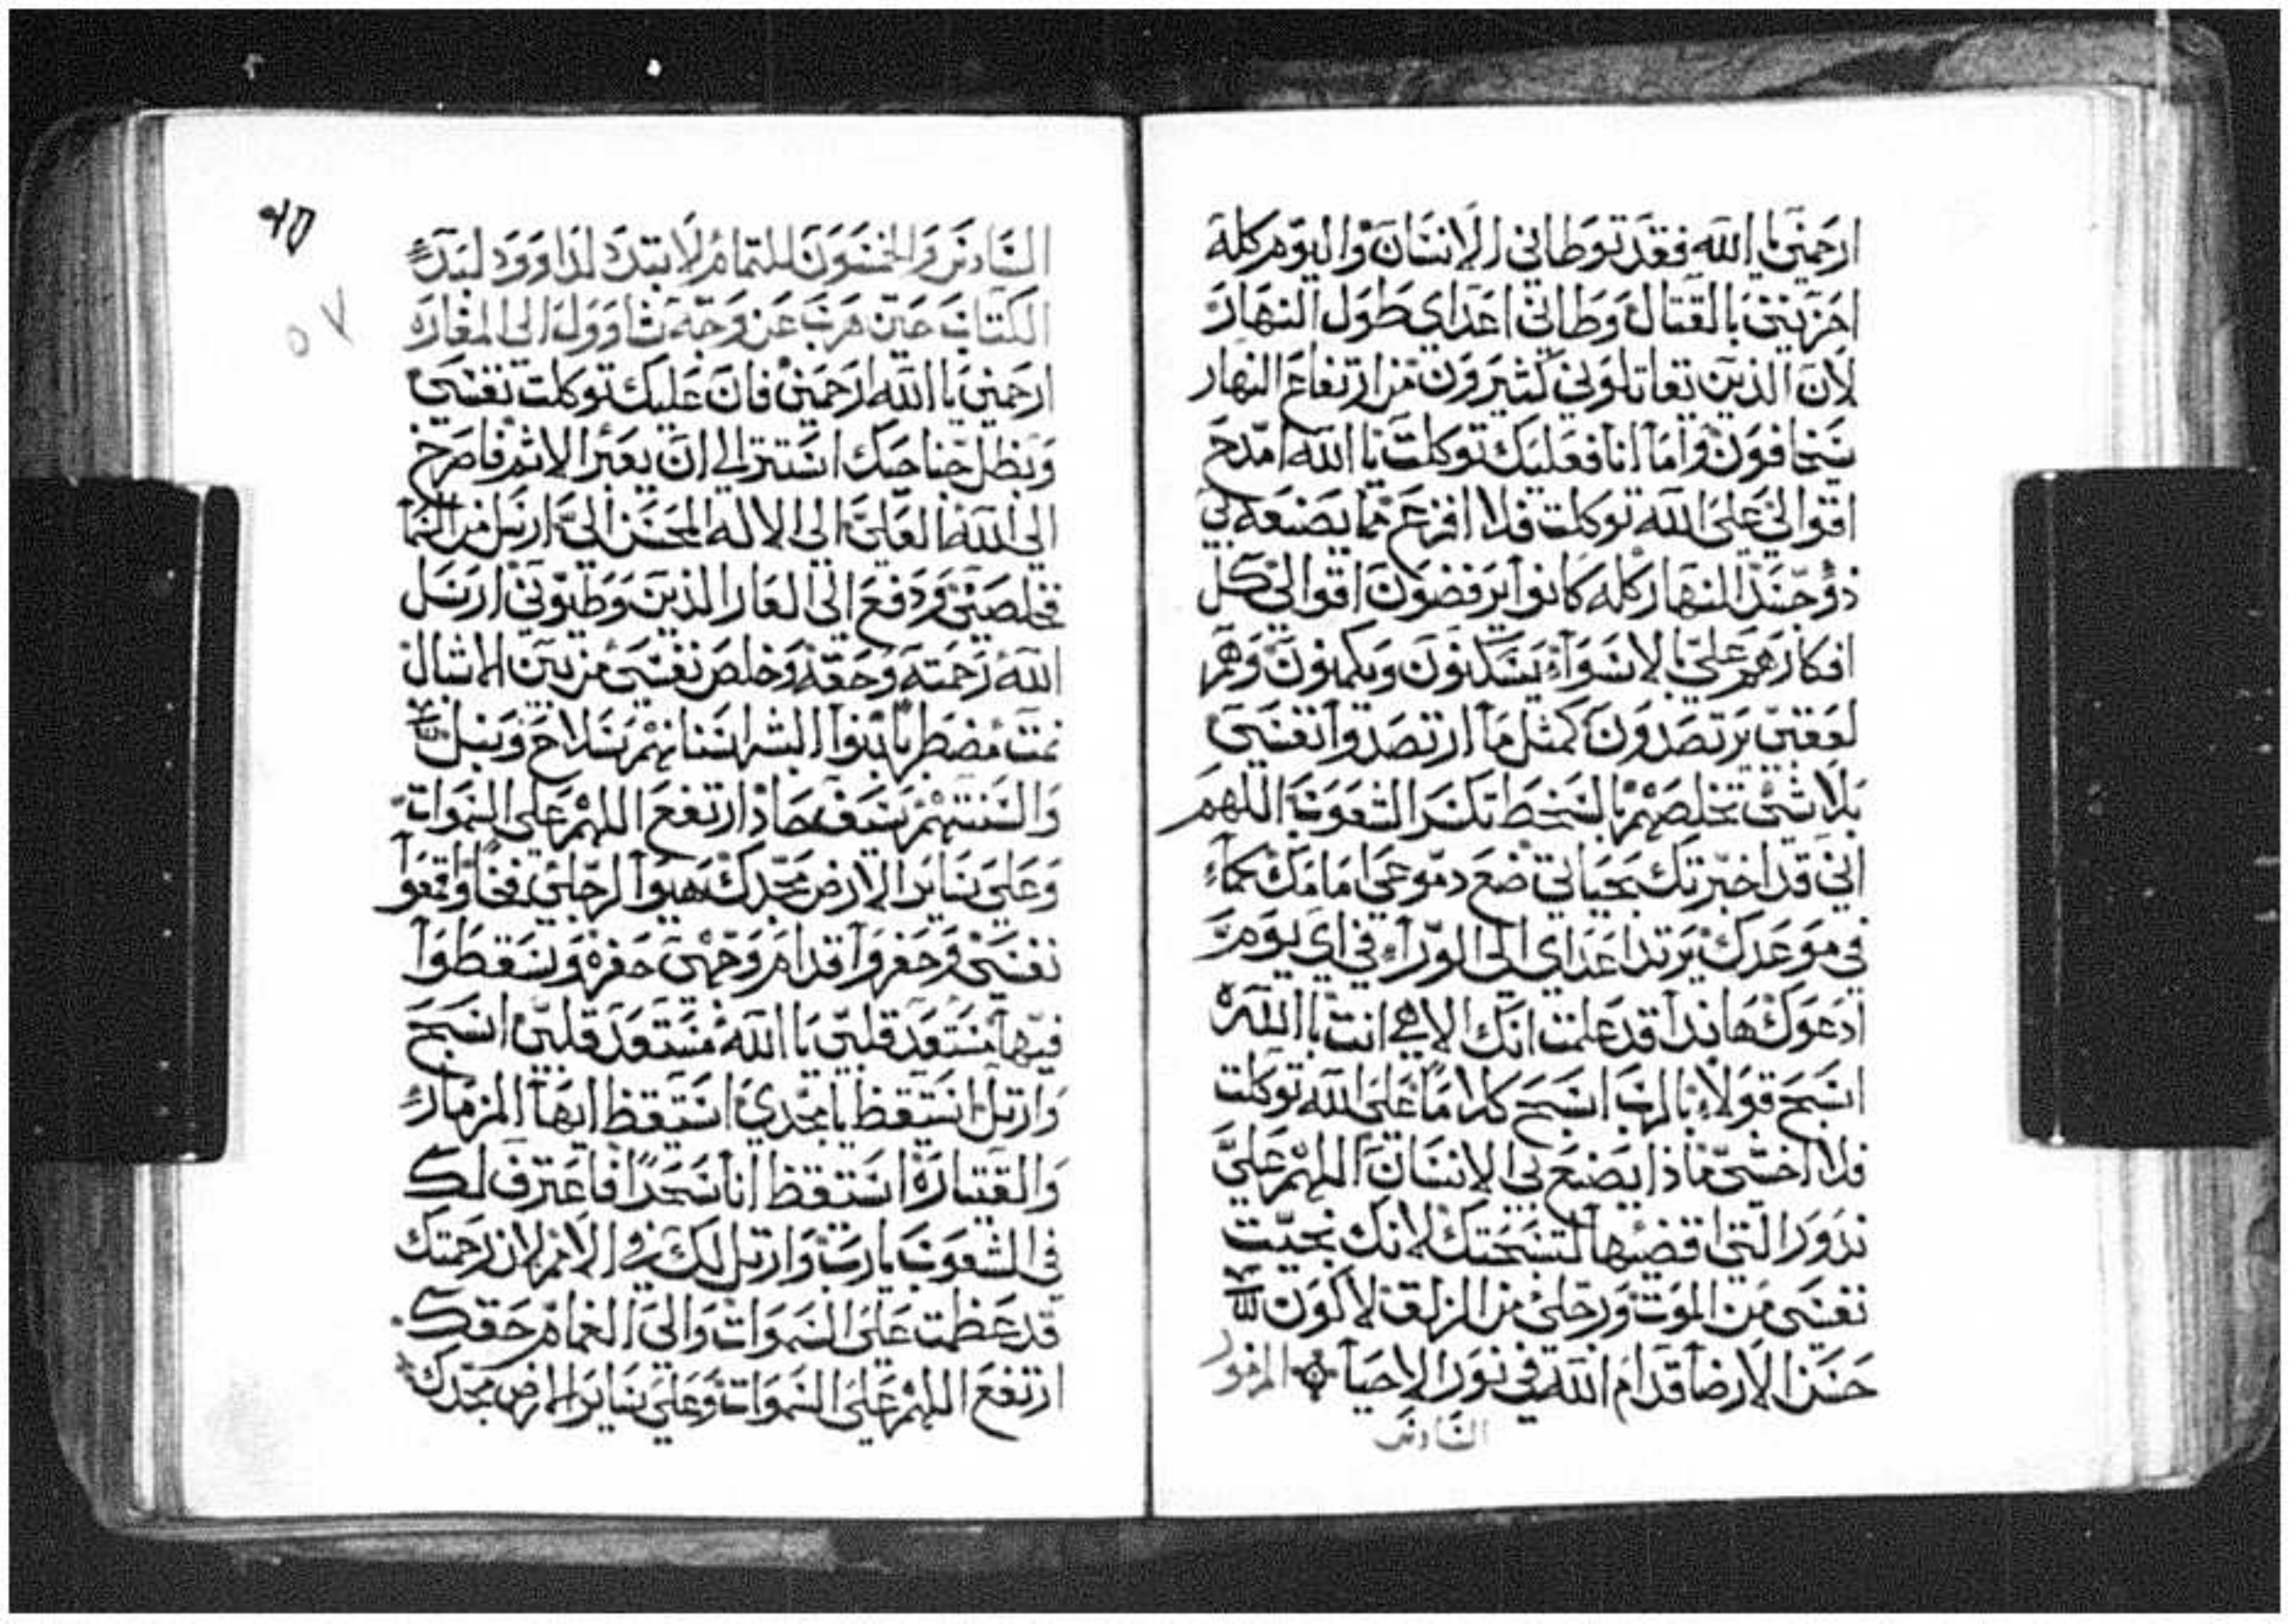 ارحمني يا الله فقد توطاني الانسان واليوم كله
احزنني بالقتال وطاني اعداي طول النهار
لان الذين تقاتلوني كثيرون من ارتفاع النهار
يخافون واما انا فعليك توكلت يا الله امدح
اقوالي على الله توكلت فلا افزع مما يصنعه بي
ذو جسد النهار كله كانوا يرفضون اقوالي كل
افكارهم علي بالاسواء يسكنون ويكمنون وهم
لعقبي يرتصدون كمثل ما ارتصدوا نفسي
بلا شي تخلصهم بالسخط تكسر الشعوب اللهم
اني قد اخبرتك بحياتي ضع دموعي امامك كما
في موعدك يرتد اعداي الى الوراء في اي يوم
ادعوك هانذا قد علمت انك الاهي انت يا الله
اسبح قولا بالرب اسبح كلاما على الله توكلت
فلا اخشى ماذا يصنع بي الانسان اللهم علي
نذور التي اقضيها لتسبحتك لانك نجيت
نفسي من الموت ورجلي من الزلق لاكون
حسن الارضا قدام الله في نور الاحيا المزمور
السادس
السادس والخمسون للتمام لا تبدد لداوود لبدء
الكتاب حين هرب عن وجه شاوول الى المغاره
ارحمني يا الله ارحمني فان عليك توكلت نفسي
وبظل جناحيك استتر الى ان يعبر الاثم فاصرخ
الى الله العلي الى الاله المحسن الي ارسل من السما
فخلصني ودفع الى العار الذين وطيوني ارسل
الله رحمته وحقه وخلص نفسي من بين الاشبال
نمت مضطربا بنوا البشر اسنانهم سلاح ونبل
والسنتهم سيف حاد ارتفع اللهم على السموات
وعلى ساير الارض مجدك هيوا لرجلي فخا واقمعوا
نفسي وحفروا قدام وجهي حفره وسقطوا
فيها مستعد قلبي يا الله مستعد قلبي اسبح
وارتل استيقظ يا مجدي استيقظ ايها المزمار
والقيتاره استيقظ انا سحرا فاعترف لك
في الشعوب يارب وارتل لك في الامم لان رحمتك
قد عظمت على السموات والى الغمام حقك
ارتفع اللهم على السموات وعلى ساير الارض مجدك